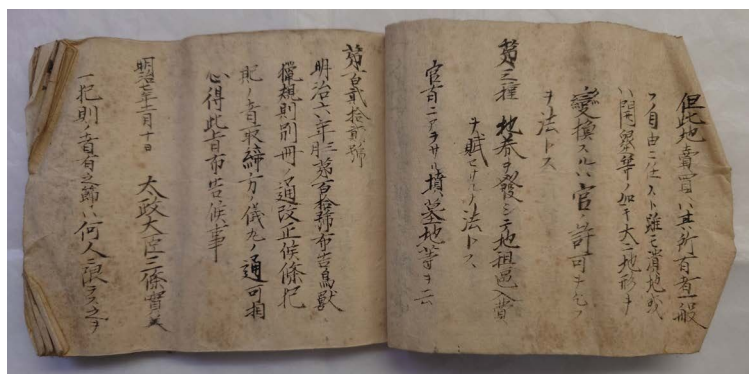 但此地賣買ハ其所有者一般
ノ自由ニ任スト雖モ潰地或
ハ開墾等ノ如キ大ニ地形ヲ
変換スルハ官ノ許可ヲ乞フ
ヲ法トス
第三種 地券ヲ發シテ地租區入費
ヲ賦セサルヲ法トス
官有ニアラサル墳墓地等ヲ云
第百貳拾貳號
明治六年 第百拾號布告鳥獸
獵規則別冊ノ通改正候條
ノ者取締方ノ儀 ノ通可相
心得此旨布告候事
明治 年十一月十日
太政大臣三條實美
一 則ノ者有之節ハ何人ニ限ラス之ヲ